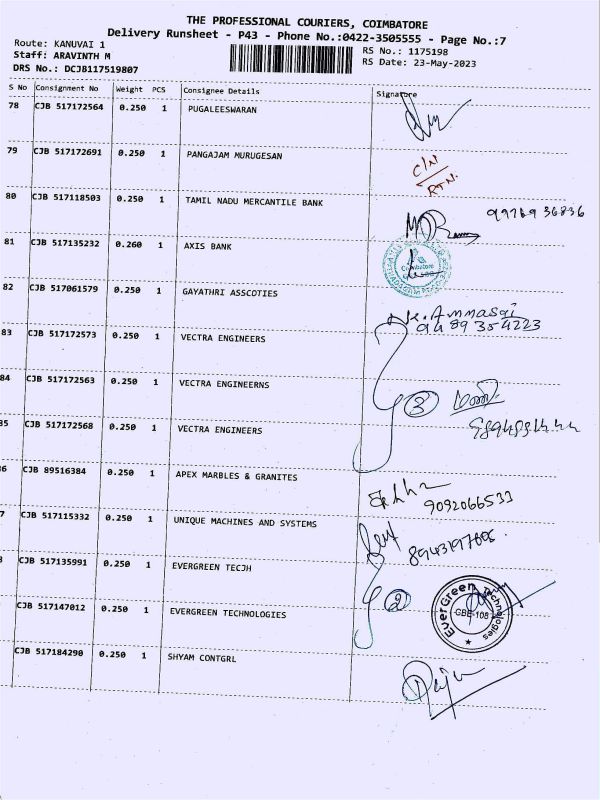 THE PROFESSIONAL COURIERS, COIMBATORE
Delivery Runsheet - P43 - Phone No.:0422-3505555 - Page No.:7
Route: KANUVAI 1
RS No.: 1175198
Staff: ARAVINTH M
RS Date: 23-May-2023
DRS No.: DCJB117519807
S No Consignment No Weight PCS Consignee Details Signature
78 CJB 517172564 0.250 1 PUGALEESWARAN
79 CJB 517172691 0.250 1 PANGAJAM MURUGESAN C/N
RTN.
80 CJB 517118503 0.250 1 TAMIL NADU MERCANTILE BANK
81 CJB 517135232 0.260 1 AXIS BANK
Coimbatore
82 CJB 517061579 0.250 1 GAYATHRI ASSCOTIES
K. Ammasai
94 89 354223
83 CJB 517172573 0.250 1 VECTRA ENGINEERS
84 CJB 517172563 0.250 1 VECTRA ENGINEERNS
3
85 CJB 517172568 0.250 1 VECTRA ENGINEERS
86 CJB 89516384 0.250 1 APEX MARBLES & GRANITES
9092066533
7 CJB 517115332 0.250 1 UNIQUE MACHINES AND SYSTEMS
CJB 517135991 0.250 1 EVERGREEN TECJH
2
EverGreen Technologies
CBE-108
CJB 517147012 0.250 1 EVERGREEN TECHNOLOGIES
CJB 517184290 0.250 1 SHYAM CONTGRL
Raju